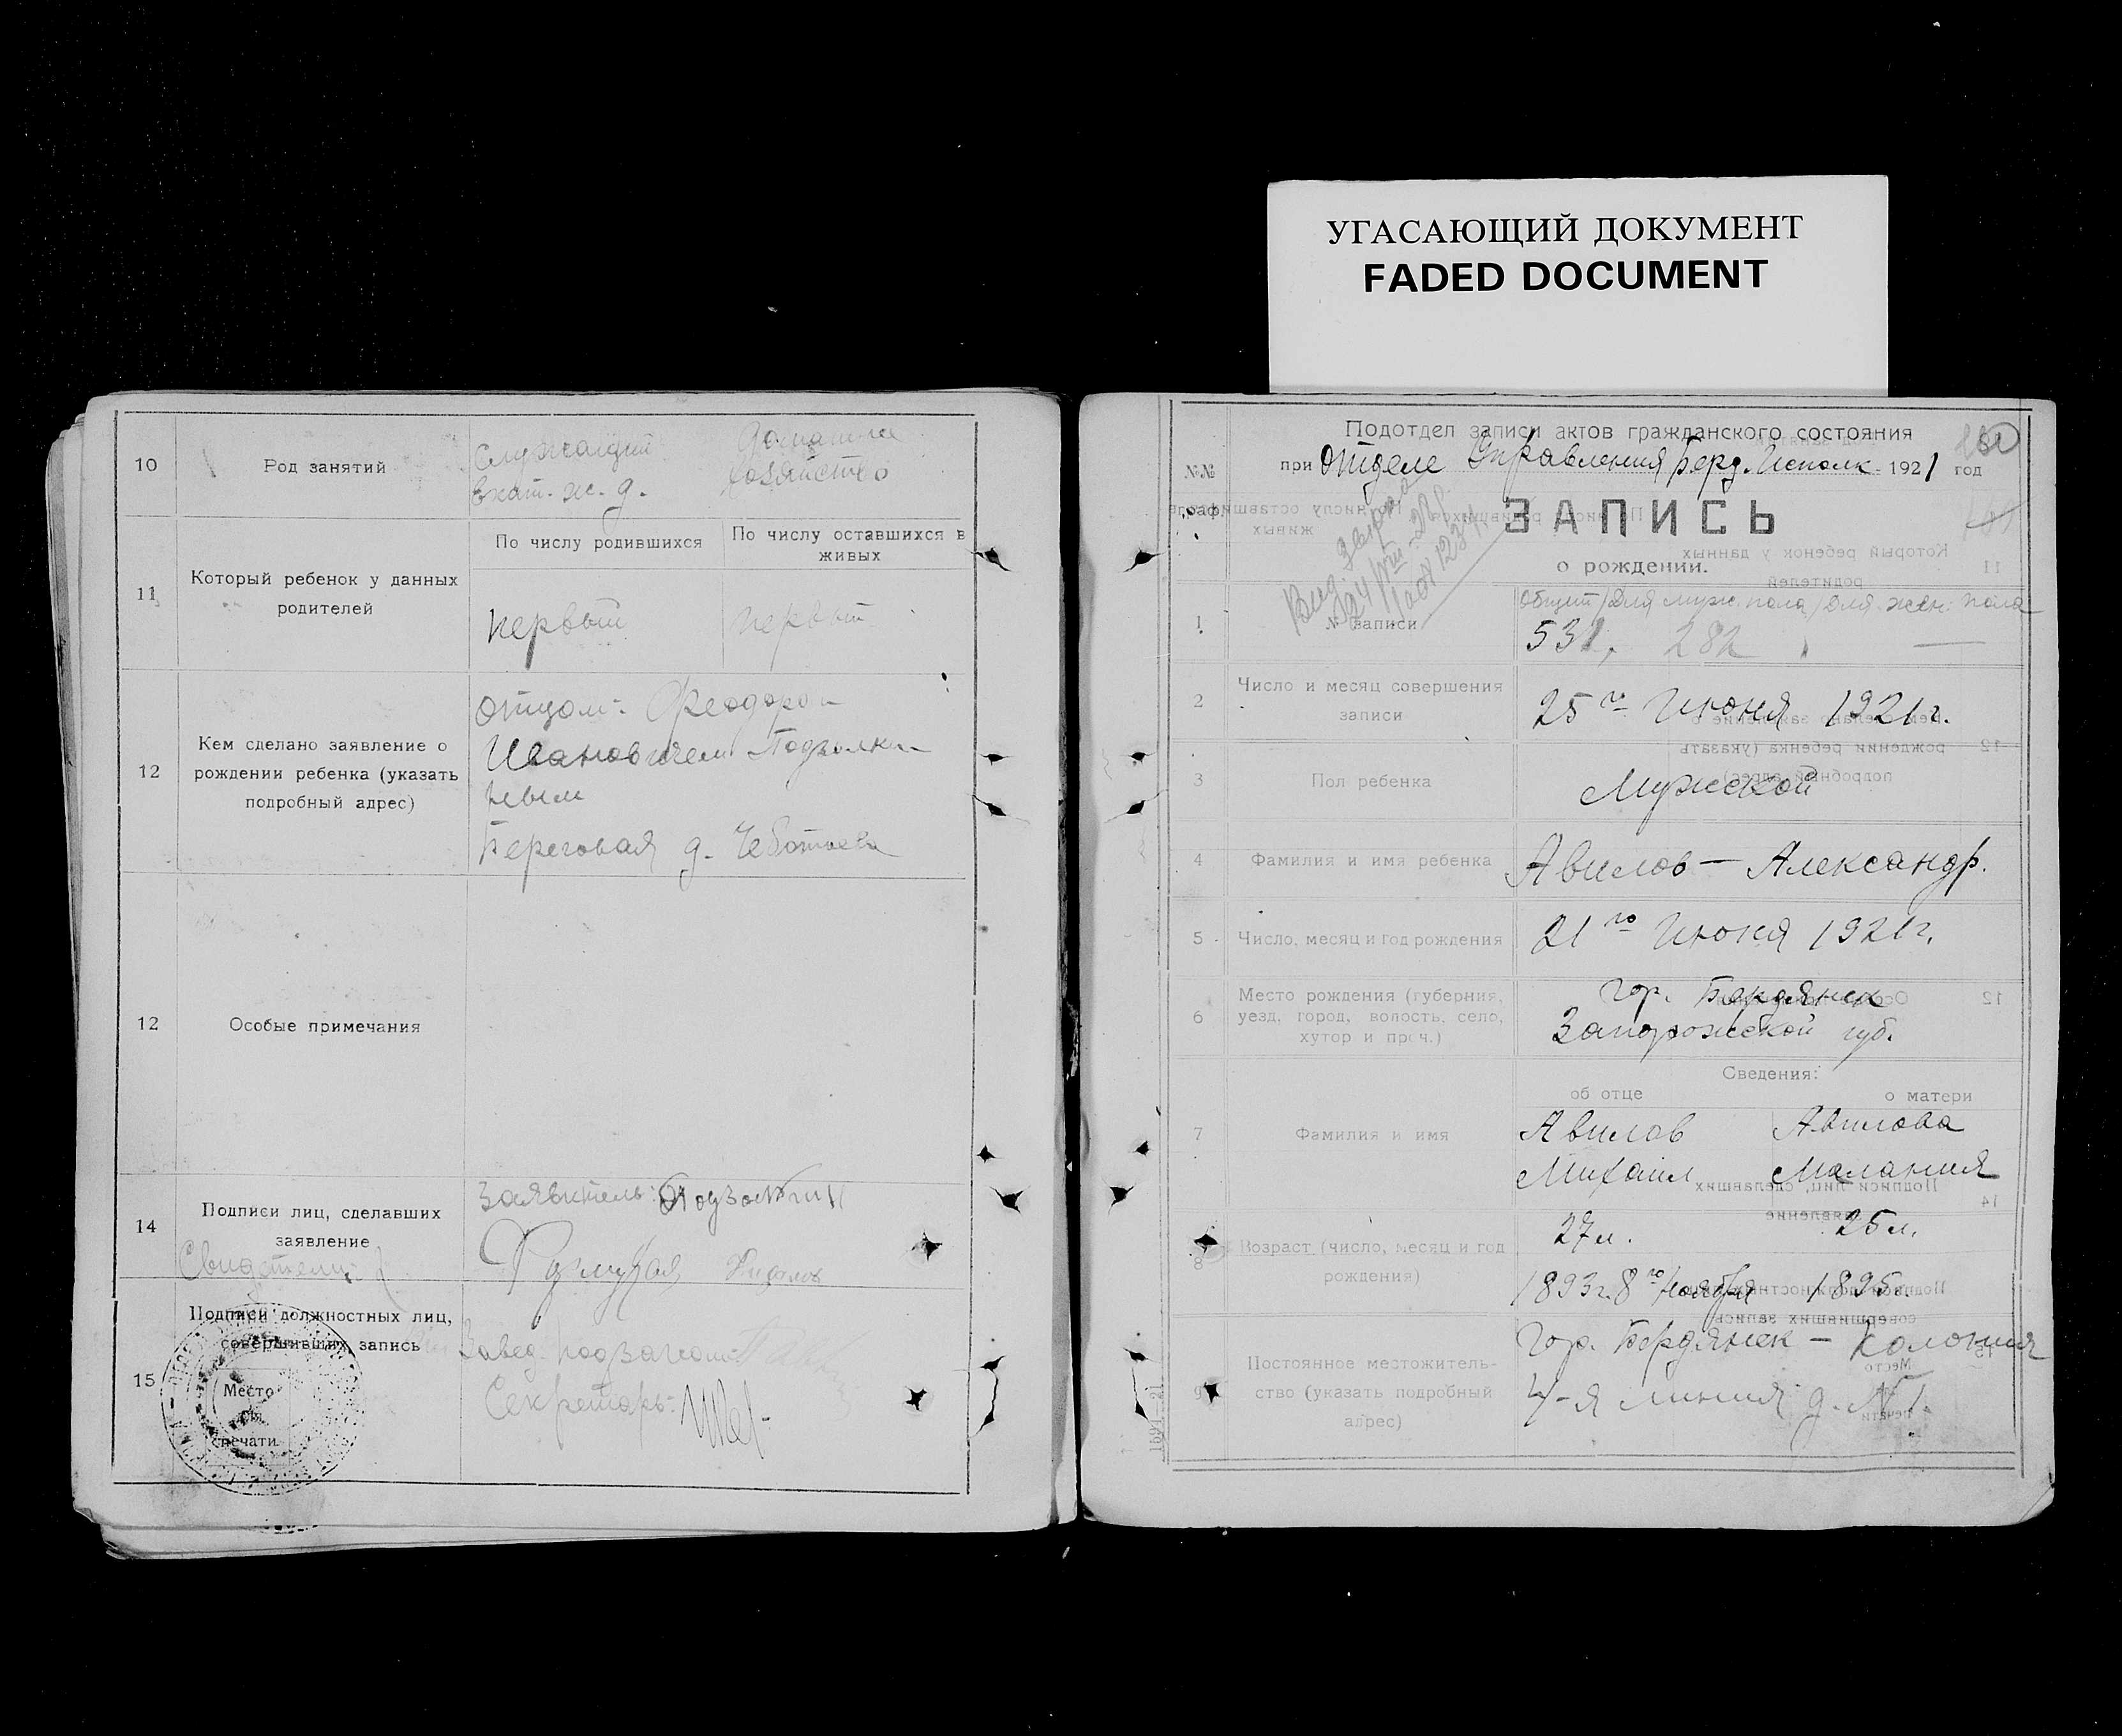 УГАСАЮЩИЙ ДОКУМЕНТ
FADED DOCUMENT
10
Род занятий
Служащий
Екат. ж. д.
домашнее
хозяйство
11
Который ребенок у данных
родителей
По числу родившихся
По числу оставшихся в
живых
первый
первый
12
Кем сделано заявление о
рождении ребенка (указать
подробный адрес)
отцом: Феодором
Ивановичем
Береговая д.
12
Особые примечания
14
Подписи лиц, сделавших
заявление
Свидетели:
Заявитель:
15
Подписи должностных лиц,
совершивших запись
Место
печати
Завед.
Секретарь:
Подотдел записи актов гражданского состояния
при Отделе Управления Берд. Исполк. 1921 год
№№
граф
ЗАПИСЬ
о рождении.
1
№ записи
Общий / Для муж. пола / Для жен. пола
531, 282 —
2
Число и месяц совершения
записи
25го Июня 1921 г.
3
Пол ребенка
Мужской
4
Фамилия и имя ребенка
Авилов — Александр.
5
Число, месяц и год рождения
21го Июня 1921 г.
6
Место рождения (губерния,
уезд, город, волость, село,
хутор и проч.)
гор. Бердянск
Запорожской губ.
Сведения:
об отце
о матери
7
Фамилия и имя
Авилов
Авилова
Михаил
Мелания
8
Возраст (число, месяц и год
рождения)
27 л.
25 л.
1893 г. 8го Ноября
1895.
9
Постоянное местожитель-
ство (указать подробный
адрес)
Гор. Бердянск — Колония
4-я линия д. № 1.